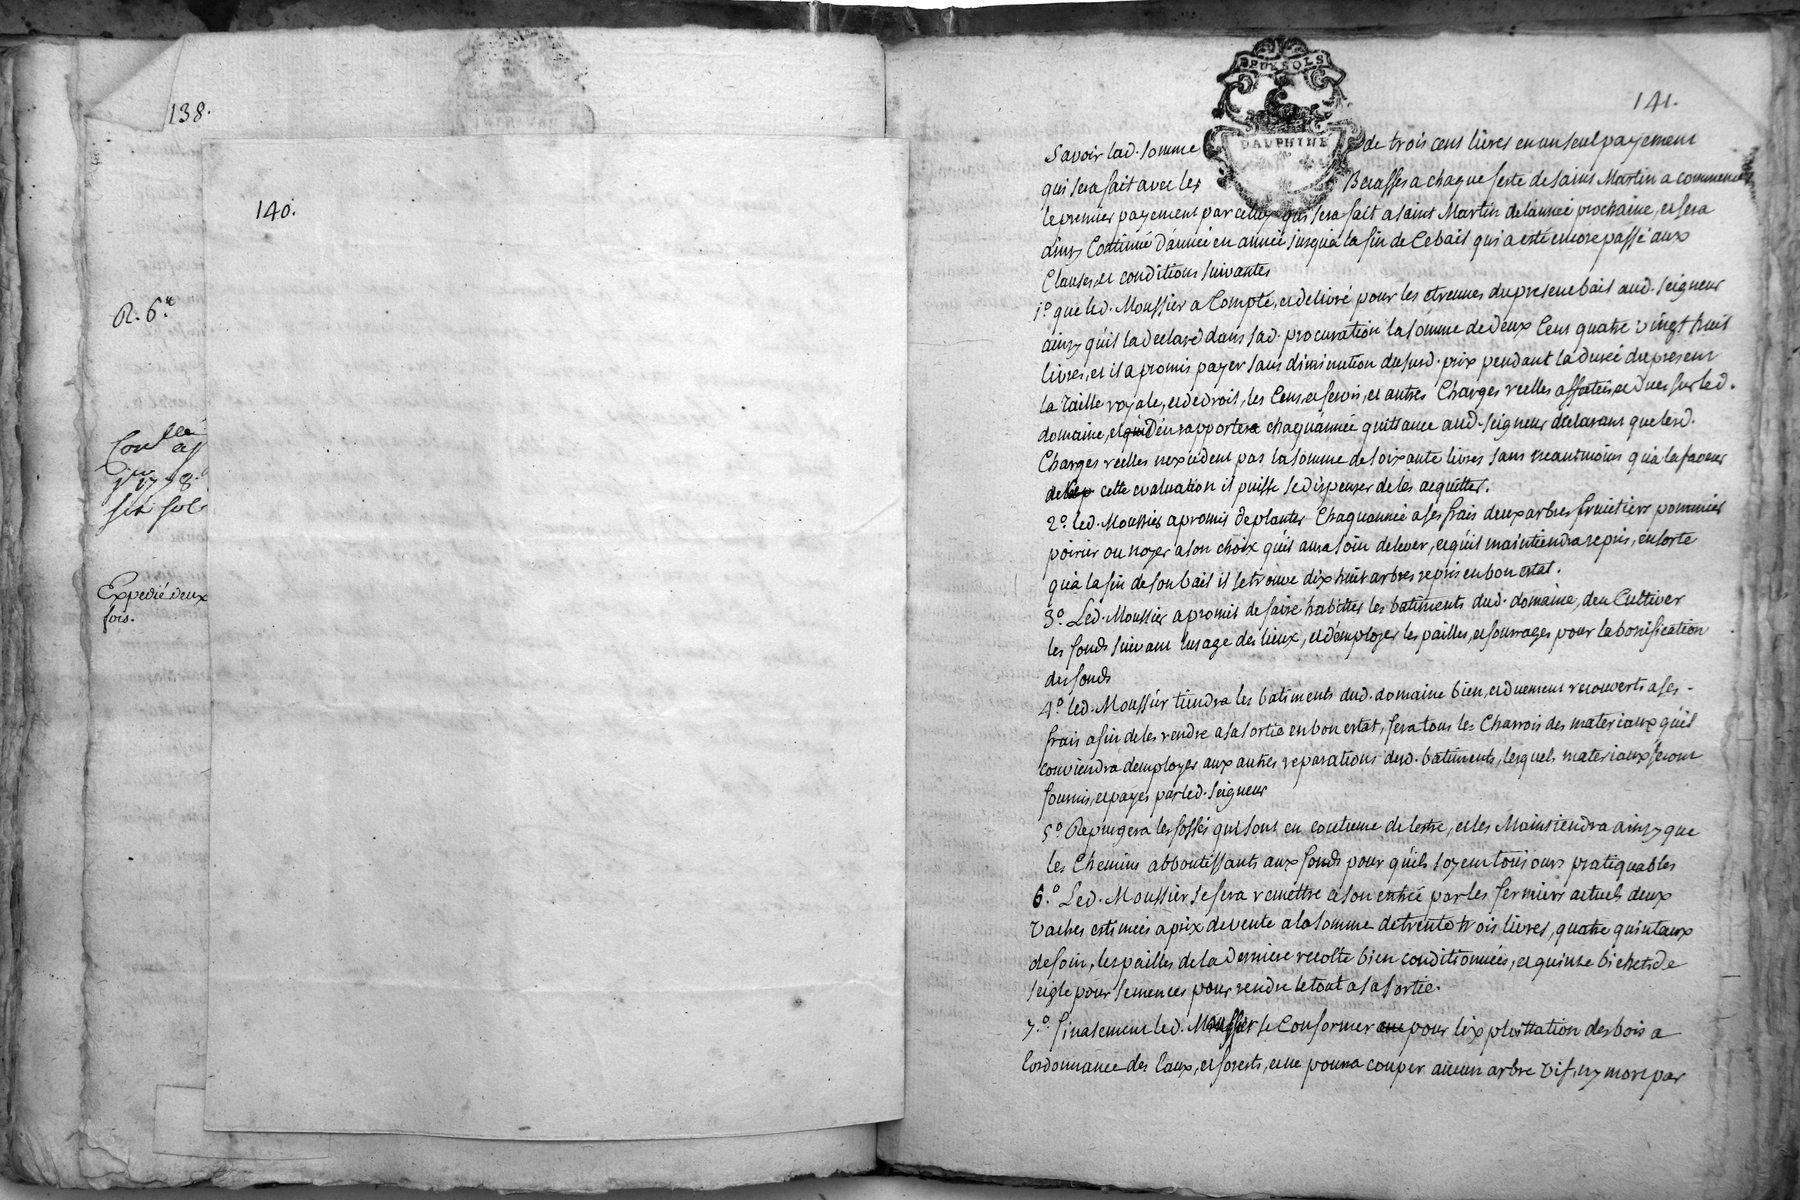 138.
140.
R. 6.tt
Conlle
six sols
Expedié deux
fois.
DEUX SOLS
DAUPHINÉ
141.
Savoir lad. somme de trois cens livres en un seul payement
qui sera fait avec les Becasses a chaque feste de saint Martin a commencer
le premier payement par celluy qui sera fait a saint Martin de l'année prochaine, et sera
ainsy Continué d'année en année jusqua la fin de Cebail qui a esté encore passé aux
Clauses, et conditions suivantes
1.o que led. Moussier a Compté, et delivré pour les etrennes du present bail aud. seigneur
ainsy qu'il la declaré dans sad. procuration la somme de deux Cens quatre vingt huit
livres, et il a promis payer sans diminution du susd. prix pendant la durée du present
la Taille royale, et dedroit, les Cens, et servis, et autres Charges reelles affectées et dues sur led.
domaine, et d'en rapporter chaquannée quittance aud. seigneur declarant que lesd.
Charges reelles nexcedent pas la somme de soixante livres sans neantmoins qua la faveur
de cette evaluation il puisse se dispenser de les acquitter.
2.o led. Moussier a promis de planter Chaquannée a ses frais deux arbres fruitiers pommier
poirier ou noyer a son choix qu'il aura soin delever, et qu'il maintiendra repris, ensorte
qua la fin de son bail il se trouve dix huit arbres repris en bon estat.
3.o Led. Moussier a promis de faire habitter les batiments dud. domaine, den Cultiver
les fonds suivant lusage des lieux, et d'employer les pailles, et fourrages pour la bonification
des fonds
4.o led. Moussier tiendra les batiments dud. domaine bien, et duement recouverts a ses -
frais afin de les rendre a sa sortie en bon estat, fera tous les Charrois des materiaux qu'il
conviendra demployer aux autres reparations desd. batiments, lesquels materiaux seront
fournis, et payes par led. seigneur
5.o Repurgera les fossés qui sont en coutume de lestre, et les Maintiendra ainsy que
les Chemins abboutissants aux fonds pour qu'ils soyent tousjours pratiquables
6.o Led. Moussier se fera remettre a son entrée par les fermiers actuels deux
Vaches estimées a prix de vente a la somme de trente trois livres, quatre quintaux
de foin, les pailles de la derniere recolte bien conditionnées, et quinze bichets de
seigle pour semences pour rendre le tout a sa sortie.
7.o finalement led. Moussier se Conformer pour lexploittation des bois a
lordonnance des Eaux, et forests, et ne pourra couper aucun arbre vif, ny mort par